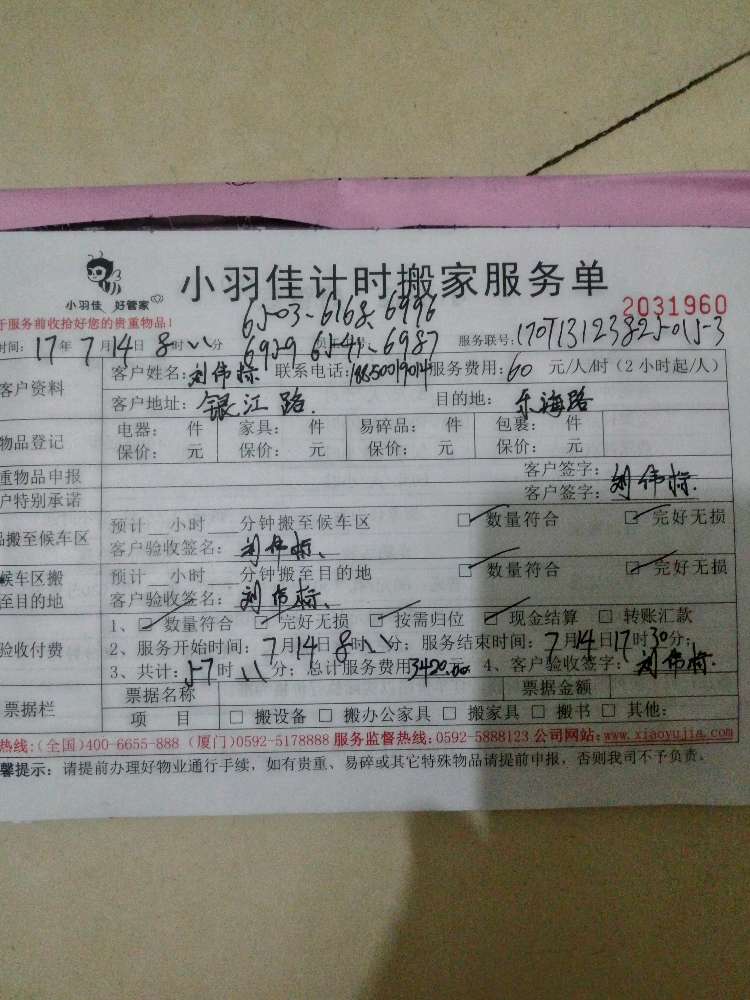 小羽佳 好管家
小羽佳计时搬家服务单
2031960
于服务前收拾好您的贵重物品!
6503、6168、6996
6959 6541、6987
时间:17年7月14日8时〃分
服务联号:170713123825015-3
客户资料 客户姓名:刘伟标 联系电话:18850019014 服务费用:60元/人/时(2小时起/人)
客户地址:银江路. 目的地:乐海路
物品登记 电器: 件 家具: 件 易碎品: 件 包裹: 件
保价: 元 保价: 元 保价: 元 保价: 元
重物品申报 客户签字:
户特别承诺 客户签字:刘伟标.
品搬至候车区 预计__小时___分钟搬至候车区 ☑数量符合 ☑完好无损
客户验收签名:刘伟标、
候车区搬至目的地 预计__小时___分钟搬至目的地 ☑数量符合 ☑完好无损
客户验收签名:刘伟标、
验收付费 1、☑数量符合 ☑完好无损 ☑按需归位 ☑现金结算 □转账汇款
2、服务开始时间:7月14日8时〃分;服务结束时间:7月14日17时30分;
3、共计:57时〃分;总计服务费用3420.00元 4、客户验收签字:刘伟标.
票据栏 票据名称 票据金额
项 目 □搬设备 □搬办公家具 □搬家具 □搬书 □其他:
热线:(全国)400-6655-888 (厦门)0592-5178888 服务监督热线:0592-5888123 公司网站:www.xiaoyujia.com
馨提示:请提前办理好物业通行手续,如有贵重、易碎或其它特殊物品请提前申报,否则我司不予负责。